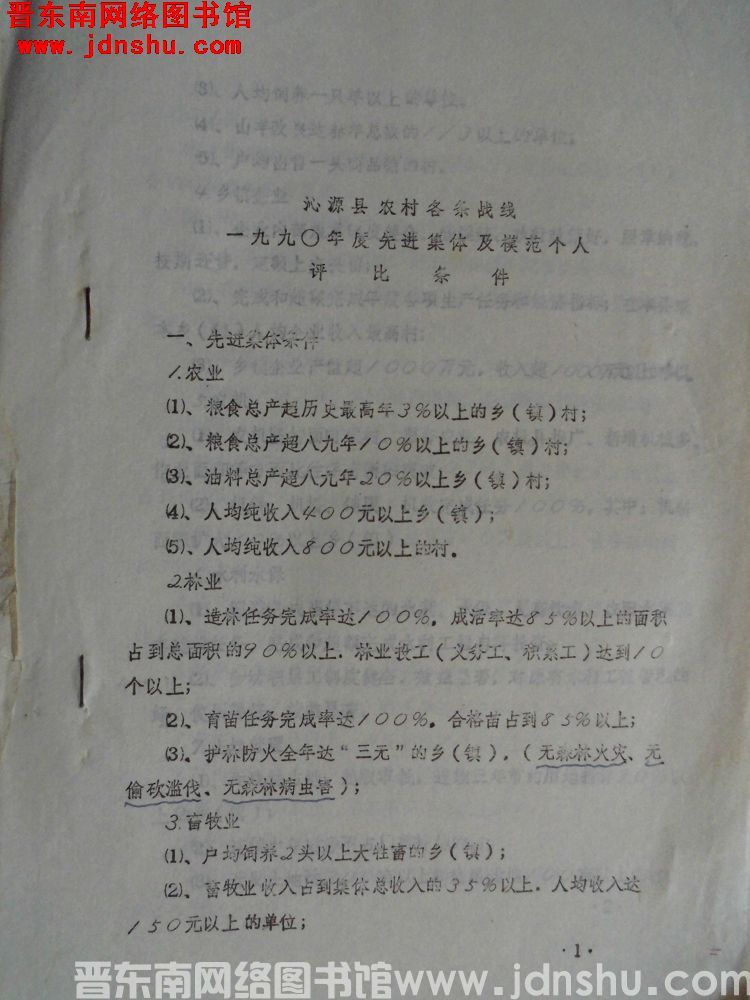 晋东南网络图书馆
www.jdnshu.com
沁源县农村各条战线
一九九〇年度先进集体及模范个人
评比条件
一、先进集体条件
1.农业
(1)、粮食总产超历史最高年3%以上的乡(镇)村;
(2)、粮食总产超八九年10%以上的乡(镇)村;
(3)、油料总产超八九年20%以上乡(镇)村;
(4)、人均纯收入400元以上乡(镇);
(5)、人均纯收入800元以上的村。
2.林业
(1)、造林任务完成率达100%,成活率达85%以上的面积
占到总面积的90%以上,林业投工(义务工、积累工)达到10
个以上;
(2)、育苗任务完成率达100%,合格苗占到85%以上;
(3)、护林防火全年达“三无”的乡(镇),(无森林火灾、无
偷砍滥伐、无森林病虫害);
3.畜牧业
(1)、户均饲养2头以上大牲畜的乡(镇);
(2)、畜牧业收入占到集体总收入的35%以上,人均收入达
150元以上的单位;
·1·
晋东南网络图书馆www.jdnshu.com